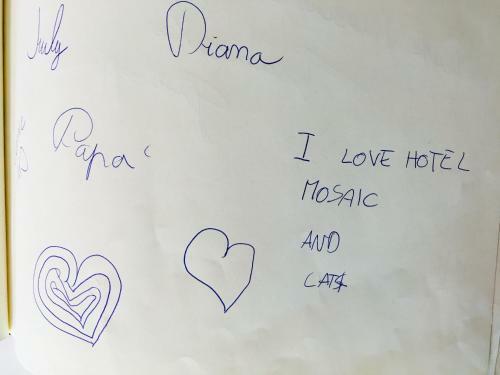 July
Diana
Papa'
I LOVE HOTEL
MOSAIC
AND
CATS